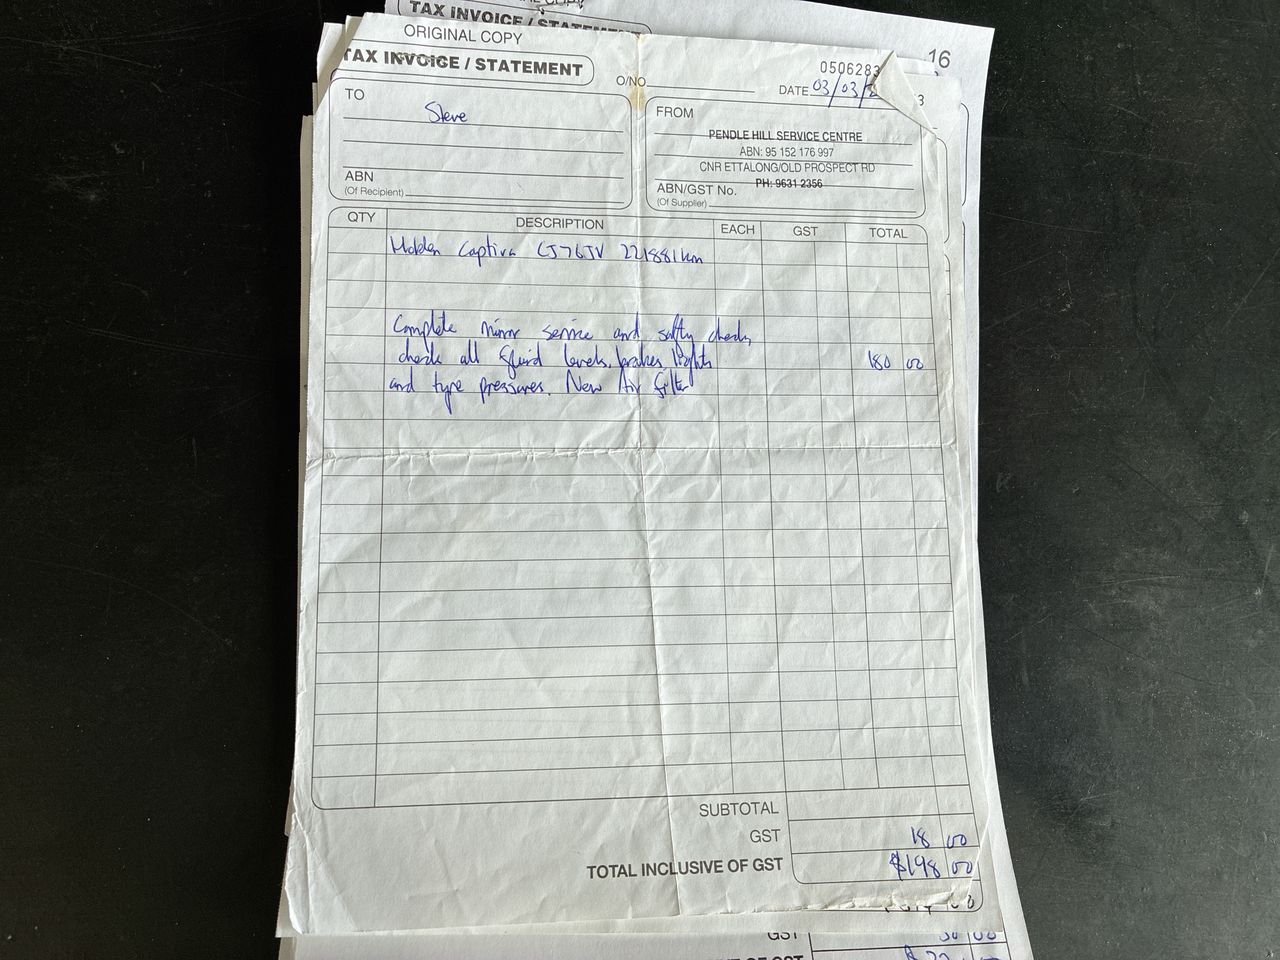 TAX INVOICE / STATEMENT
16
ORIGINAL COPY
TAX INVOICE / STATEMENT
O/NO
0506283
DATE 03/03/
3
TO
Steve
ABN
(Of Recipient)
FROM
PENDLE HILL SERVICE CENTRE
ABN: 95 152 176 997
CNR ETTALONG/OLD PROSPECT RD
PH: 9631 2356
ABN/GST No.
(Of Supplier)
QTY DESCRIPTION EACH GST TOTAL
Holden Captiva CJ76JV 221881km
Complete minor service and safty checks,
check all fluid levels, brakes, lights 180 00
and tyre pressures. New Air filter
SUBTOTAL
GST 18 00
TOTAL INCLUSIVE OF GST $198 00
GST 30 00